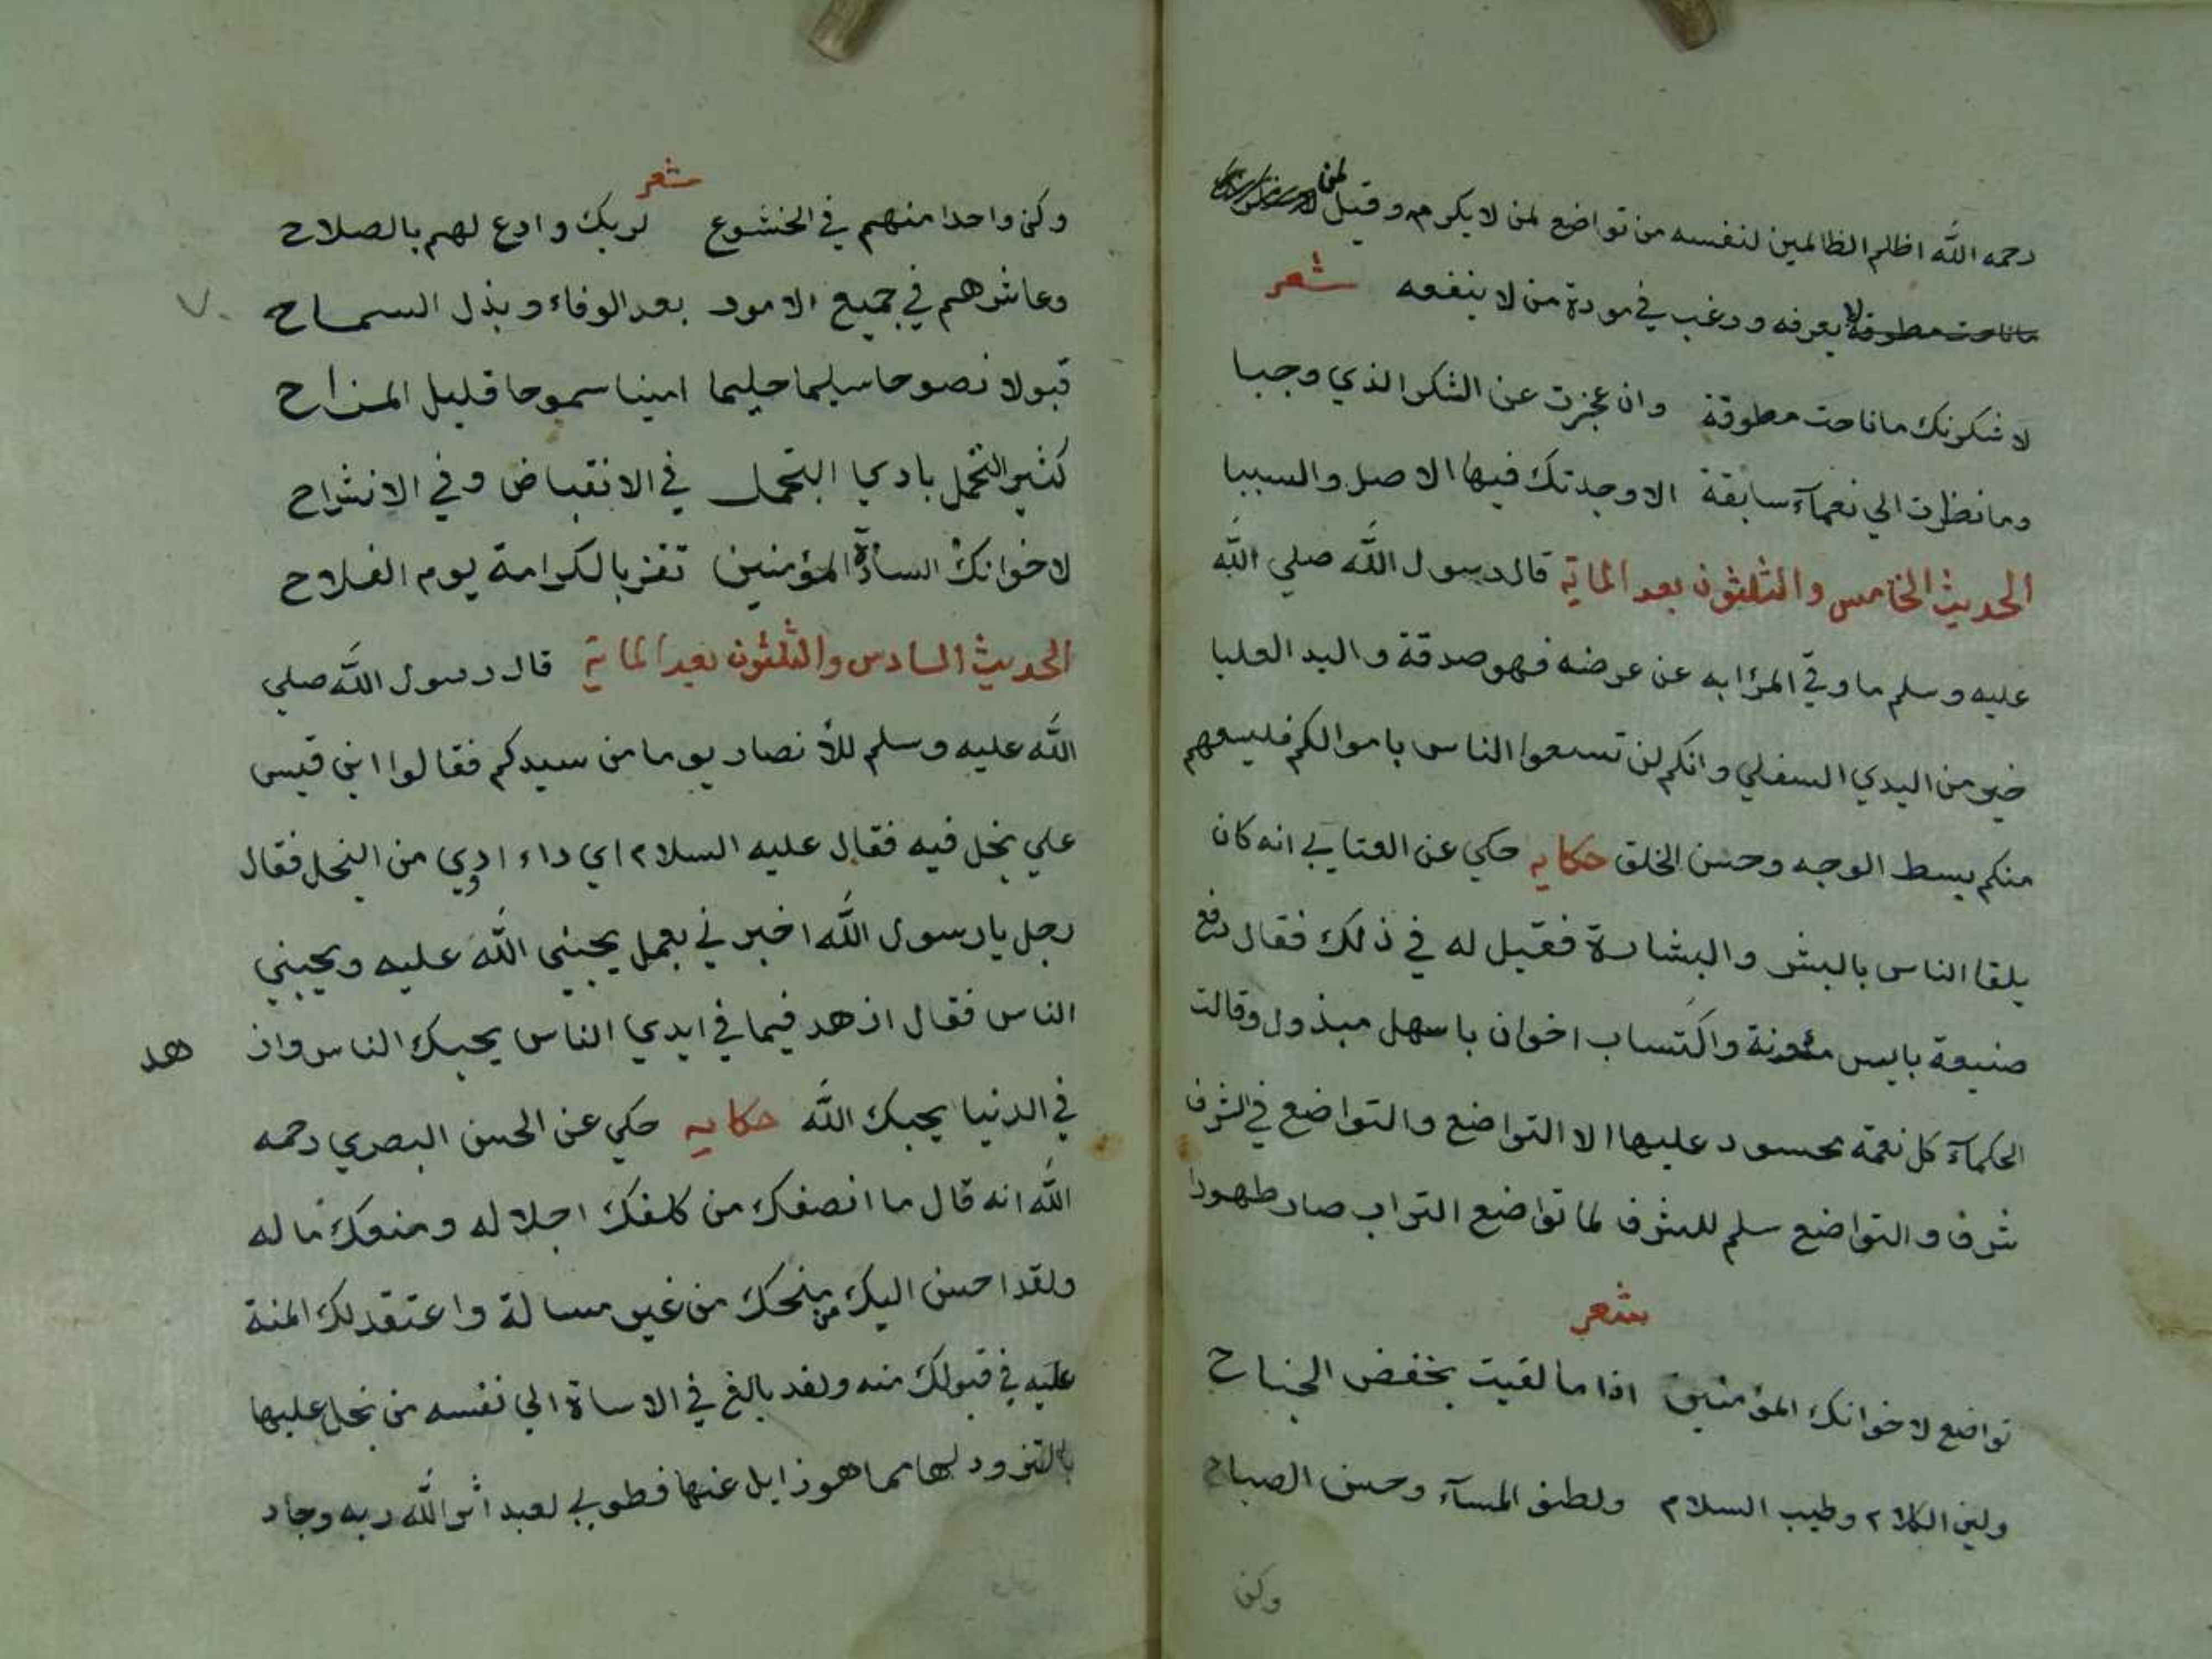 رحمه الله اظلم الظالمين لنفسه من تواضع لمن لا يكرمه وقيل لمن
ماناحت مطوقة لا يعرفه ورغب في مودة من لا ينفعه شعر
لاشكرنك ماناحت مطوقة وان عجزت عن الشكر الذي وجبا
وما نظرت الي نعمآء سابقة الا وجدتك فيها الاصل والسببا
الحديث الخامس والثلثون بعد الماية قال رسول الله صلي الله
عليه وسلم ما وقي المرٔا به عن عرضه فهو صدقة واليد العليا
خير من اليدي السفلي وانكم لن تسعوا الناس باموالكم فليسعهم
منكم بسط الوجه وحسن الخلق حكايه حكي عن العتابي انه كان
يلقا الناس بالبشر والبشارة فقيل له في ذلك فقال دفع
ضيعة بايسر مئونة واكتساب اخوان باسهل مبذول وقالت
الحكمآء كل نعمة محسود عليها الا التواضع والتواضع في الشرف
شرف والتواضع سلم للشرف لما تواضع التراب صار طهورا
شعر
تواضع لاخوانك المؤمنين اذا ما لقيت بخفض الجناح
ولين الكلام وطيب السلام ولطف المسآء وحسن الصباح
وكن
شعر
وكن واحدا منهم في الخشوع لربك وادع لهم بالصلاح
وعاشرهم في جميع الامور بعد الوفاء وبذل السماح
قبولا نصوحا سليما حليما امينا سموحا قليل المزاح
كثير التحمل بادي التجمل في الانقباض وفي الانشراح
لاخوانك السادة المؤمنين تفز بالكرامة يوم الفلاح
الحديث السادس والثلثون بعد الماية قال رسول الله صلي
الله عليه وسلم للأنصار يوما من سيدكم فقالوا ابن قيس
علي بخل فيه فقال عليه السلام اي داء ادوي من البخل فقال
رجل يا رسول الله اخبرني بعمل يحبني الله عليه ويحبني
الناس فقال ازهد فيما في ايدي الناس يحبك الناس واز هد
في الدنيا يحبك الله حكايه حكي عن الحسن البصري رحمه
الله انه قال ما انصفك من كلفك اجلاله ومنعك ماله
ولقد احسن اليك من منحك من غير مسالة واعتقد لك المنة
عليه في قبولك منه ولقد بالغ في الاساة الي نفسه من بخل عليها
بالتزود لها مما هو زايل عنها فطوبي لعبد اثر الله ربه وجاد